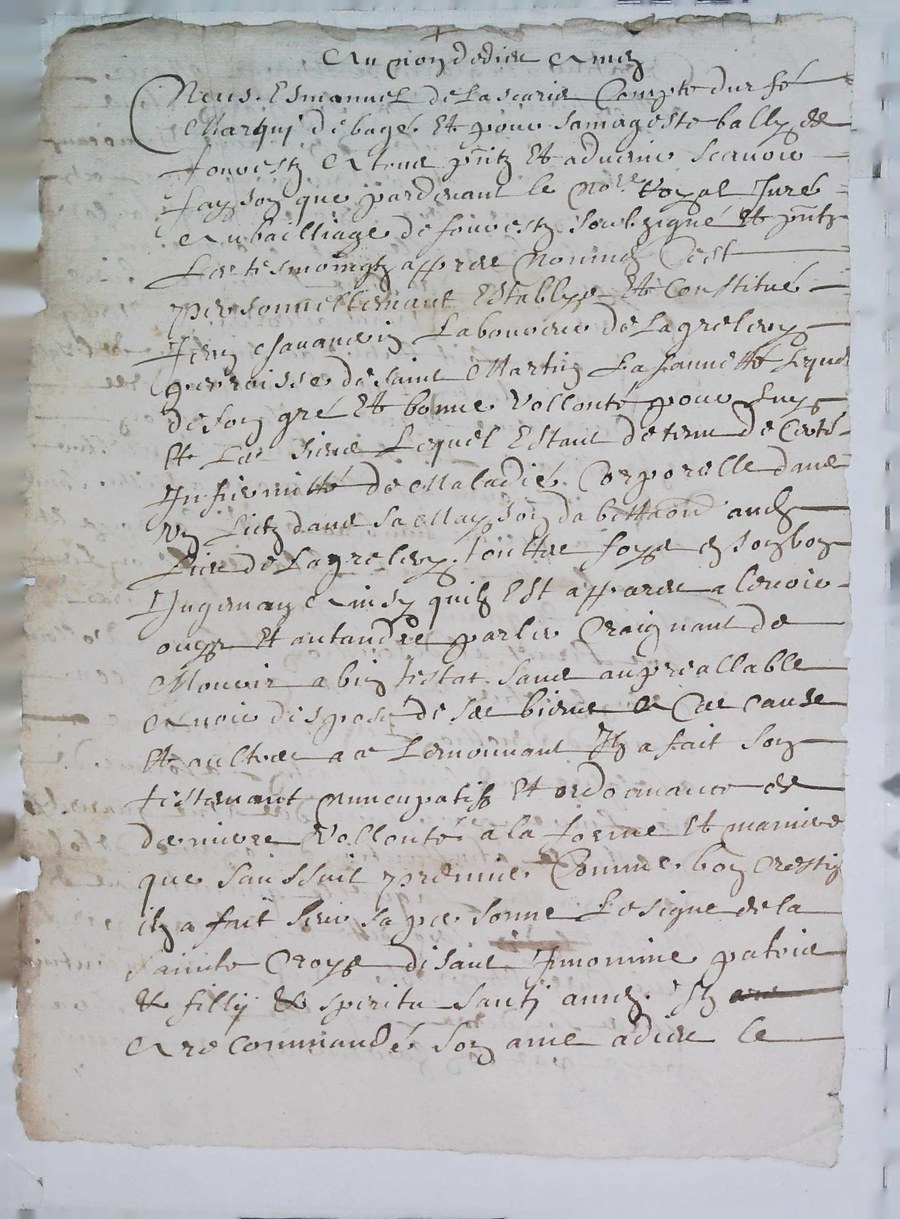 Au nom de dieu Amen
Nous Esmanuel de Lascaris Compte d'urfé
Marqui de bagé Et pour sa mageste bally de
fourestz A tous pntz et advenir scavoir
faysons que pardevant le nore Royal Juré
Au bailliage de fourestz soubzigné Et pntz
Les tesmoingtz appres nommés c'est
personnellemant Estably Et Constitué
Jean Laboureur de Lagrelery
parroisse de saint Martin La sauvetté Lequel
de son gré Et bonne vollonté pour luy
Et Les siens Lequel Estant detenu de Certe
Infirmitté de Malladié Corporelle dans
un Lict dans sa Mayson dabittaon aud
Lieu de Lagrelery touttes foys en son bon
Jugemant Ainsy quil Est apparu a levoir
ouyr Et antandre parler Craignant de
Mourir abin testat sans au preallable
Avoir disposé de ses biens A Ces causes
Et aultres a ce Lemouvant Il a fait son
testemant nuncupatif Et ordonnance de
derniere vollonté a la forme Et maniere
que sanssuit premier Comme bon Crestien
il a fait sur sa personne Le signe de la
sainte Croys disant Innomine patris
Et fillij Et spiritu santi amen Il
A recommandé son ame a dieu Le